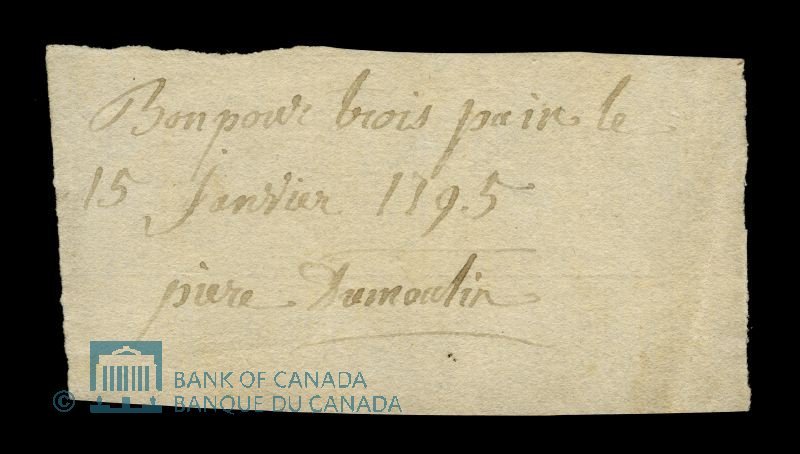 Bon pour trois pain le
15 Janvier 1795
piere Dumoulin
© BANK OF CANADA
BANQUE DU CANADA